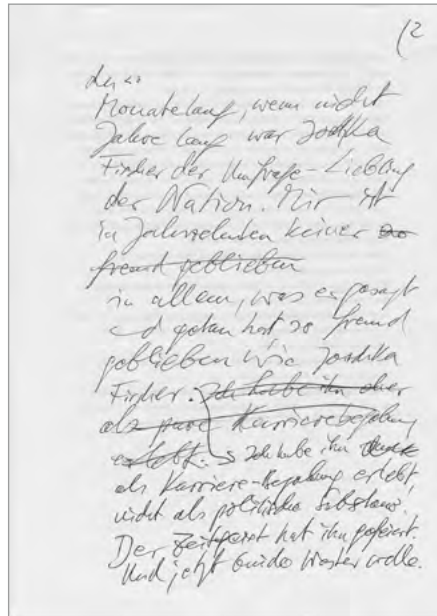 (2
Monatelang, wenn nicht
Jahre lang war Joschka
Fischer der Umfrage-Liebling
der Nation. Mir ist
in Jahrzehnten keiner so
fremd geblieben
in allem, was er gesagt
und getan hat so fremd
geblieben wie Joschka
Fischer. Ich habe ihn eher
als pure Karrierebegabung
erlebt. Ich habe ihn
als Karriere-Begabung erlebt,
nicht als politische Substanz.
Der Zeitgeist hat ihn gefeiert.
Und jetzt Guido Westerwelle.